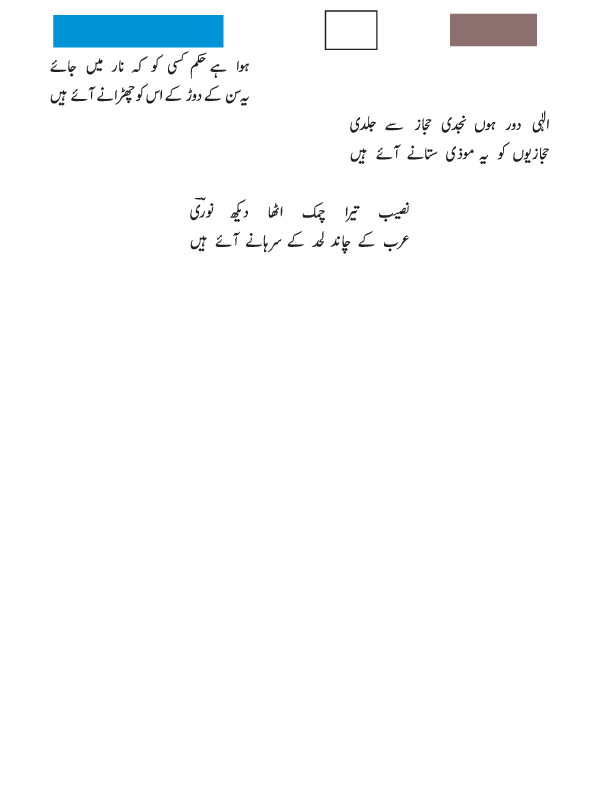 ہوا ہے حکم کسی کو کہ نار میں جائے
یہ سن کے دوڑ کے اس کو چھڑانے آئے ہیں
الٰہی دور ہوں نجدی حجاز سے جلدی
حجازیوں کو یہ موذی ستانے آئے ہیں
نصیب تیرا چمک اٹھا دیکھ نوریؔ
عرب کے چاند لحد کے سرہانے آئے ہیں